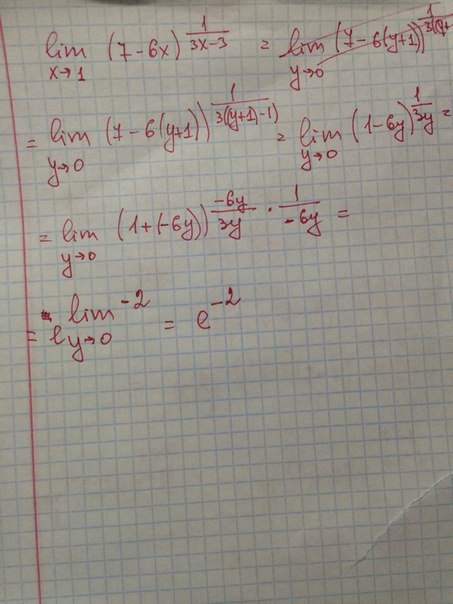 lim x→1 (7-6x)^(1/(3x-3)) = lim y→0 (7-6(y+1))^(1/(3(y+
= lim y→0 (7-6(y+1))^(1/(3((y+1)-1))) = lim y→0 (1-6y)^(1/(3y)) =
= lim y→0 (1+(-6y))^((-6y)/(3y) · 1/(-6y)) =
= e^(lim y→0 -2) = e^(-2)